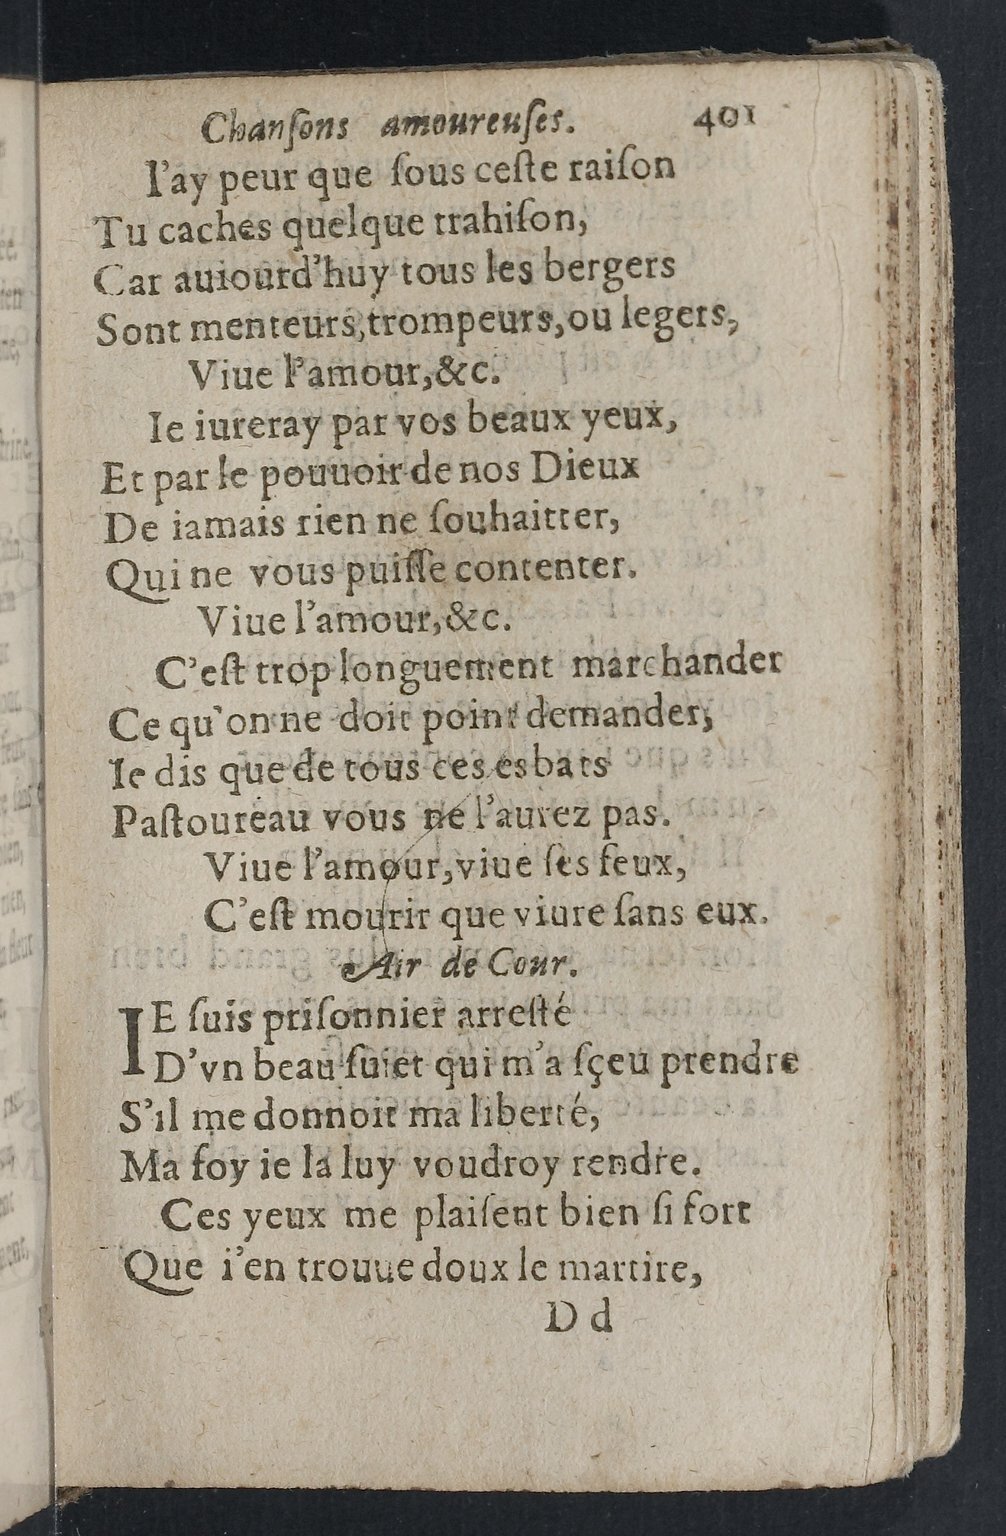 Chanſons amoureuſes. 401
I'ay peur que ſous ceſte raiſon
Tu caches quelque trahiſon,
Car auiourd'huy tous les bergers
Sont menteurs, trompeurs, ou legers,
Viue l'amour, &c.
Ie iureray par vos beaux yeux,
Et par le pouuoir de nos Dieux
De iamais rien ne ſouhaitter,
Qui ne vous puiſſe contenter.
Viue l'amour, &c.
C'eſt trop longuement marchander
Ce qu'on ne doit point demander,
Ie dis que de tous ces esbats
Paſtoureau vous ne l'aurez pas.
Viue l'amour, viue ſes feux,
C'eſt mourir que viure ſans eux.
Air de Cour.
IE ſuis priſonnier arreſté
D'vn beau ſuiet qui m'a ſçeu prendre
S'il me donnoit ma liberté,
Ma foy ie la luy voudroy rendre.
Ces yeux me plaiſent bien ſi fort
Que i'en trouue doux le martire,
D d